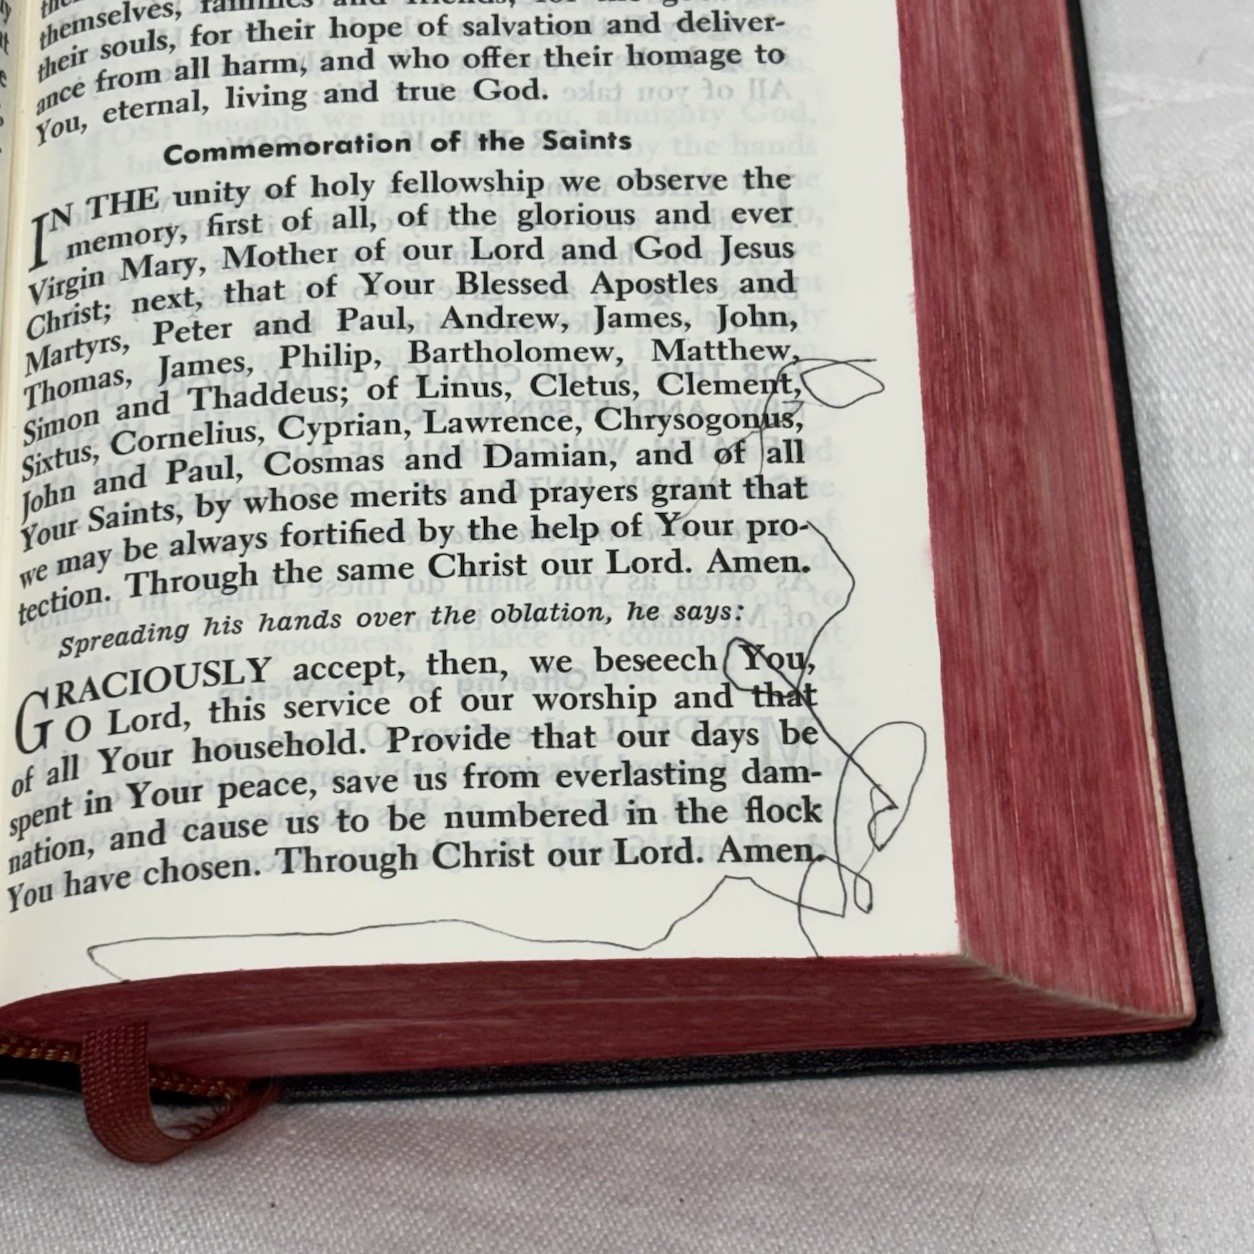 themselves, families and friends, for the
their souls, for their hope of salvation and deliver-
ance from all harm, and who offer their homage to
You, eternal, living and true God.
Commemoration of the Saints
IN THE unity of holy fellowship we observe the
memory, first of all, of the glorious and ever
Virgin Mary, Mother of our Lord and God Jesus
Christ; next, that of Your Blessed Apostles and
Martyrs, Peter and Paul, Andrew, James, John,
Thomas, James, Philip, Bartholomew, Matthew,
Simon and Thaddeus; of Linus, Cletus, Clement,
Sixtus, Cornelius, Cyprian, Lawrence, Chrysogonus,
John and Paul, Cosmas and Damian, and of all
Your Saints, by whose merits and prayers grant that
we may be always fortified by the help of Your pro-
tection. Through the same Christ our Lord. Amen.
Spreading his hands over the oblation, he says:
GRACIOUSLY accept, then, we beseech You,
O Lord, this service of our worship and that
of all Your household. Provide that our days be
spent in Your peace, save us from everlasting dam-
nation, and cause us to be numbered in the flock
You have chosen. Through Christ our Lord. Amen.